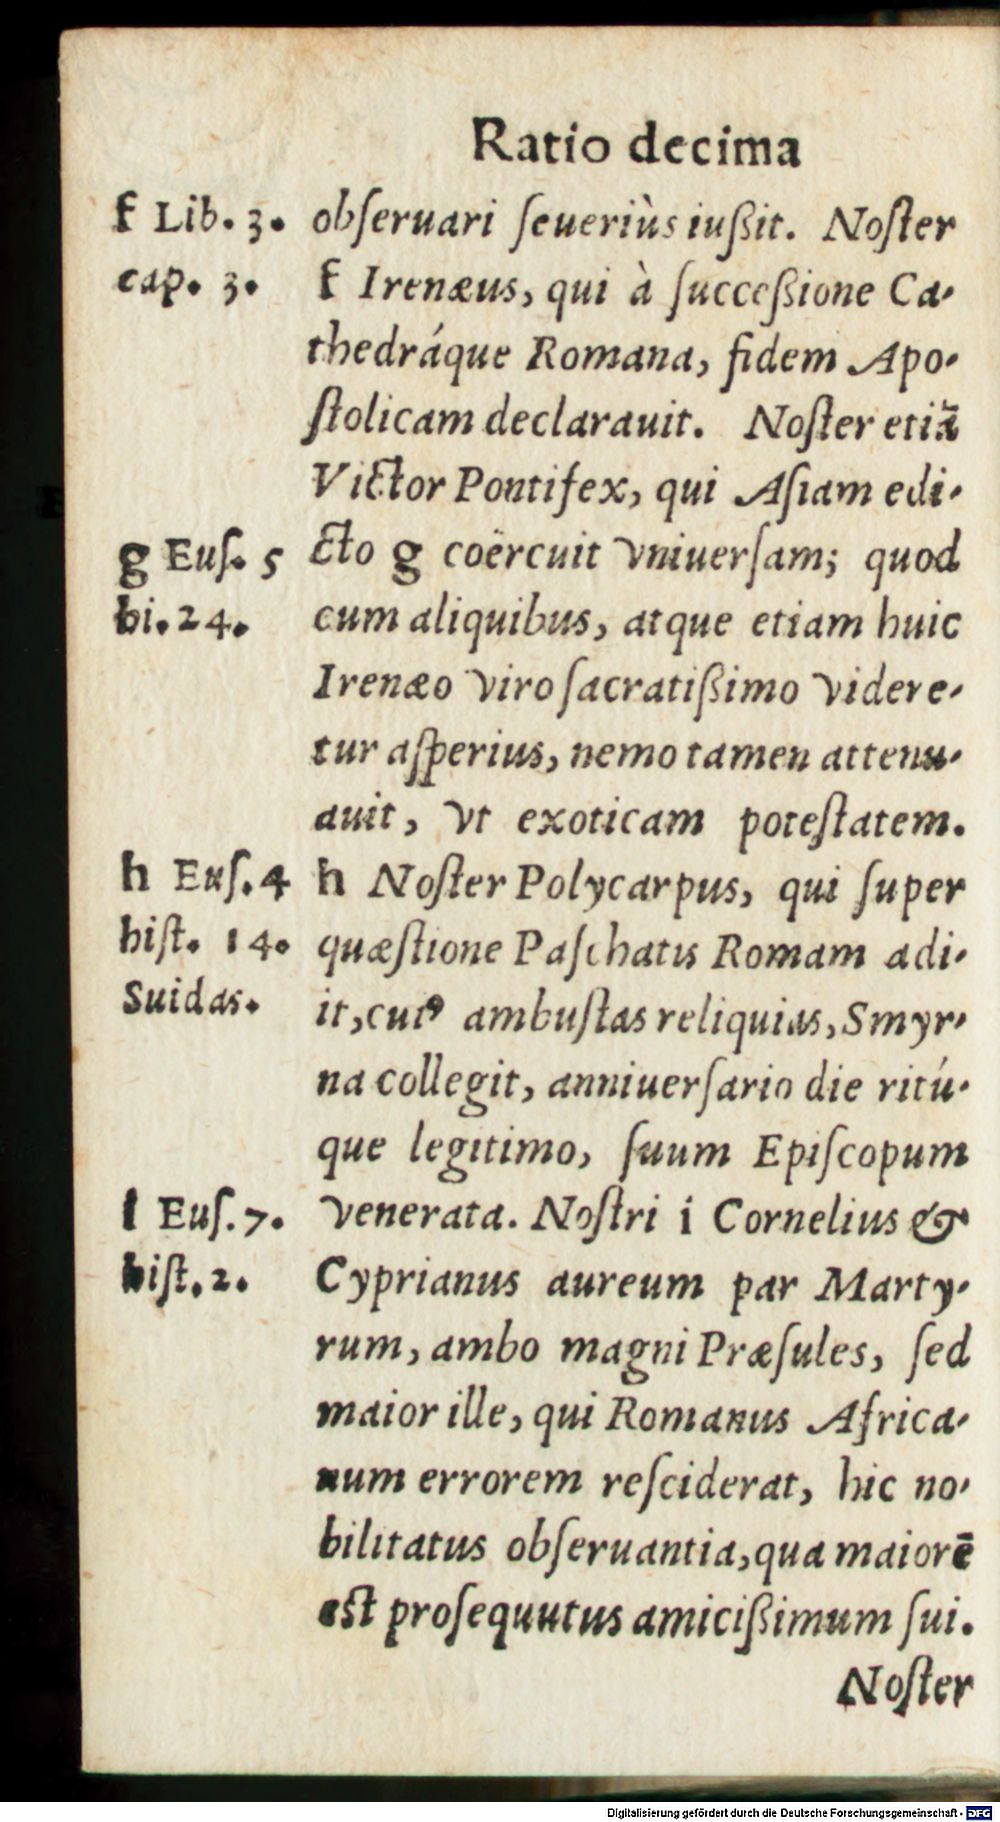 Ratio decima
f Lib. 3.
cap. 3.
obſeruari ſeueriùs iußit. Noſter
f Irenæus, qui à ſucceßione Ca-
thedráque Romana, fidem Apo-
ſtolicam declarauit. Noſter etiã
Victor Pontifex, qui Aſiam edi-
g Euſ. 5
hi. 24.
cto g coërcuit vniuerſam; quod
cum aliquibus, atque etiam huic
Irenæo viro ſacratißimo videre-
tur aſperius, nemo tamen attenu-
auit, vt exoticam poteſtatem.
h Euſ. 4
hiſt. 14.
Suidas.
h Noſter Polycarpus, qui ſuper
quæſtione Paſchatis Romam adi-
it, cuiꝰ ambuſtas reliquias, Smyr-
na collegit, anniuerſario die ritú-
que legitimo, ſuum Epiſcopum
i Euſ. 7.
hiſt. 2.
venerata. Noſtri i Cornelius &
Cyprianus aureum par Marty-
rum, ambo magni Præſules, ſed
maior ille, qui Romanus Africa-
num errorem reſciderat, hic no-
bilitatus obſeruantia, qua maiorē
eſt proſequutus amicißimum ſui.
Noſter
Digitalisierung gefördert durch die Deutsche Forschungsgemeinschaft - DFG